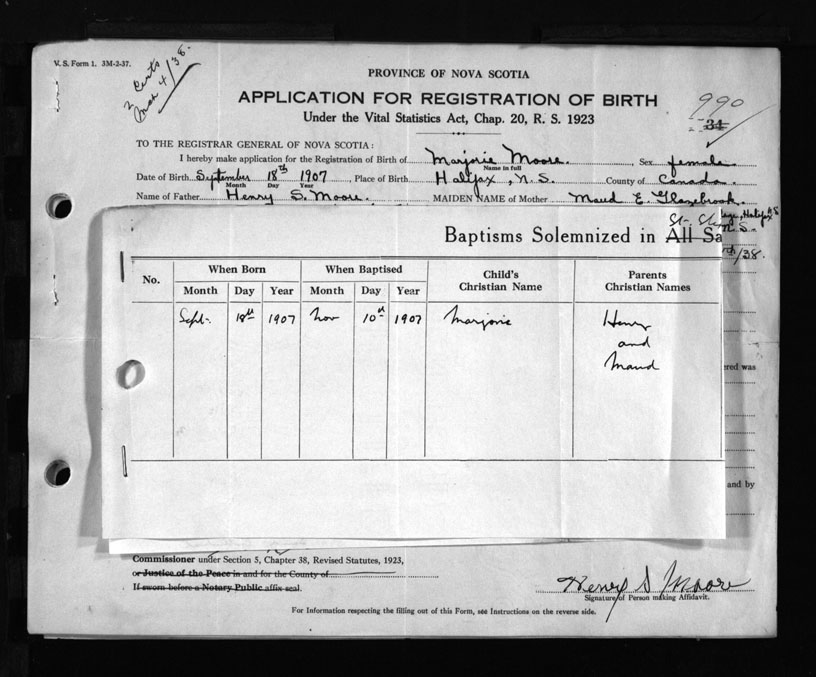 V. S. Form 1. 3M-2-37.
2 cents
Mar 4/38.
PROVINCE OF NOVA SCOTIA
APPLICATION FOR REGISTRATION OF BIRTH
Under the Vital Statistics Act, Chap. 20, R. S. 1923
990
34
TO THE REGISTRAR GENERAL OF NOVA SCOTIA:
I hereby make application for the Registration of Birth of Marjorie Moore. , Sex female
Name in full
Date of Birth September 18th 1907 , Place of Birth Halifax, N.S. County of Canada.
Month Day Year
Name of Father Henry S. Moore. MAIDEN NAME of Mother Maud E. Glazebrook.
Halifax N.S.
N.S.
/38.
Baptisms Solemnized in All Sa
No. When Born When Baptised Child's Christian Name Parents Christian Names
Month Day Year Month Day Year
Sept. 18th 1907 Nov 10th 1907 Marjorie Henry
and
Maud
ered was
and by
Commissioner under Section 5, Chapter 38, Revised Statutes, 1923,
or Justice of the Peace in and for the County of
If sworn before a Notary Public affix seal.
Henry S Moore
Signature of Person making Affidavit.
For Information respecting the filling out of this Form, see Instructions on the reverse side.